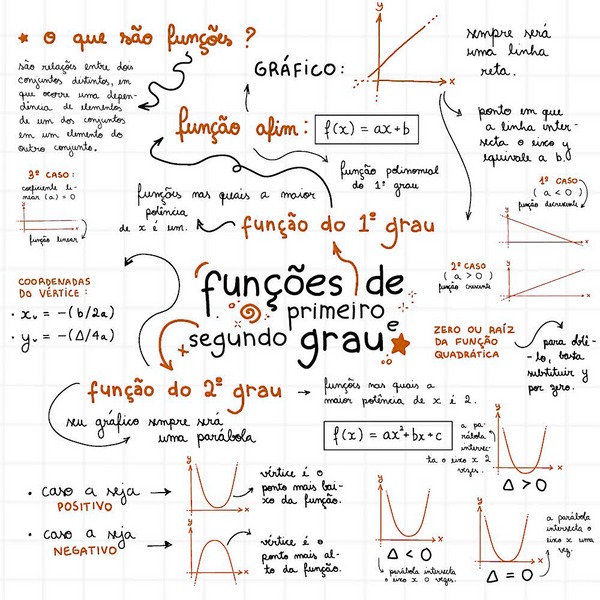 ★ O que são funções ?
são relações entre dois
conjuntos distintos, em
que ocorre uma depen-
dência de elementos
de um dos conjuntos
em um elemento do
outro conjunto.
GRÁFICO:
y
x
sempre será
uma linha
reta.
função afim:
f(x) = ax+b
ponto em que
a linha inter-
secta o eixo y
equivale a b.
função polinomial
do 1º grau
3º CASO:
coeficiente li-
near (a) = 0
y
x
função linear
funções nas quais a maior
potência
de x é um.
função do 1º grau
1º CASO
( a < 0 )
função decrescente
y
x
2º CASO
( a > 0 )
função crescente
y
x
COORDENADAS
DO VÉRTICE:
• xᵥ = -(b/2a)
• yᵥ = -(Δ/4a)
funções de
primeiro
e
segundo grau
+
ZERO OU RAÍZ
DA FUNÇÃO
QUADRÁTICA
para obtê-
-lo, basta
substituir y
por zero.
função do 2º grau
funções nas quais a
maior potência de x é 2.
seu gráfico sempre será
uma parábola
f(x) = ax²+bx+c
a pa-
rábola
intersec-
ta o eixo x 2
vezes.
y
x
Δ > 0
• caso a seja
POSITIVO
y
x
vértice é o
ponto mais bai-
xo da função.
• caso a seja
NEGATIVO
y
x
vértice é o
ponto mais al-
to da função.
y
x
Δ < 0
parábola intersecta
o eixo x 0 vezes.
y
x
Δ = 0
a parábola
intersecta o
eixo x uma
vez.